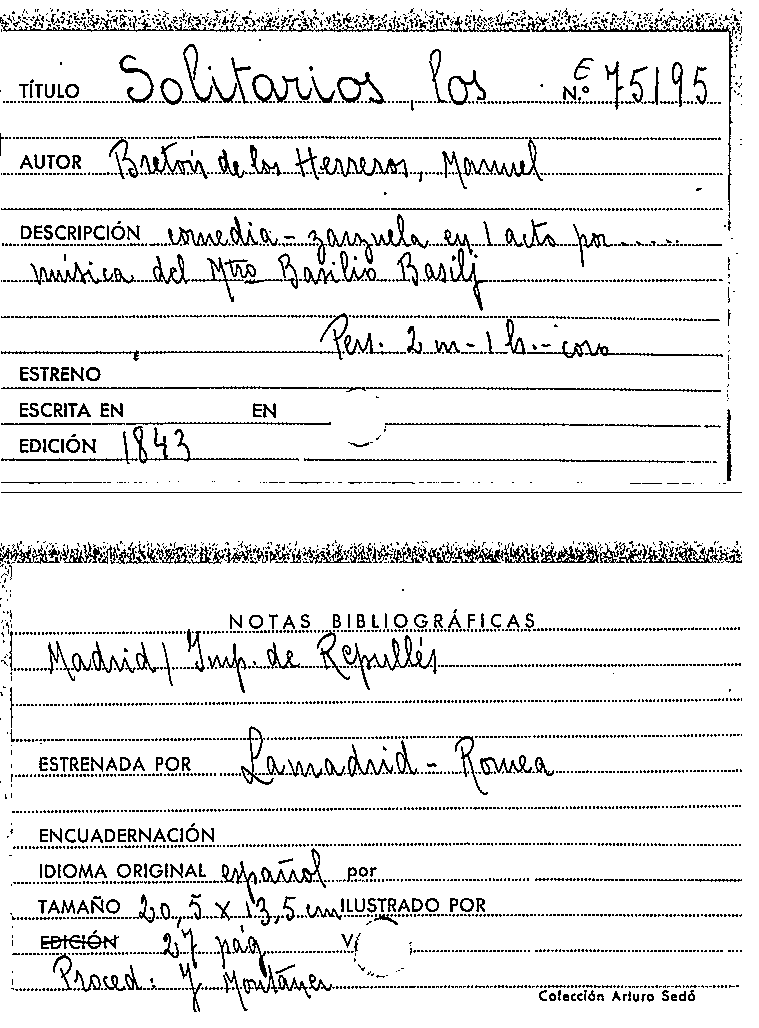 TÍTULO Solitarios, los N.º E 75195
AUTOR Bretón de los Herreros, Manuel
DESCRIPCIÓN comedia - zarzuela en 1 acto por.....
música del Mtro Basilio Basilj
Pers. 2 m - 1 h. - coro
ESTRENO
ESCRITA EN EN
EDICIÓN 1843
NOTAS BIBLIOGRÁFICAS
Madrid / Imp. de Repullés
ESTRENADA POR Lamadrid - Romea
ENCUADERNACIÓN
IDIOMA ORIGINAL español por
TAMAÑO 20,5 x 13,5 cm ILUSTRADO POR
EDICIÓN 27 pág V.
Proced: Montáner
Colección Arturo Sedó